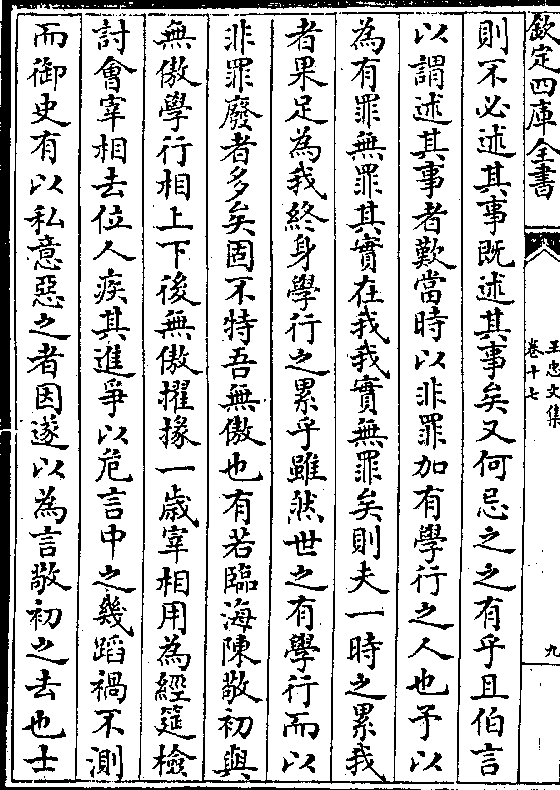 欽定四庫全書
王忠文集
卷十七
九
則不必述其事既述其事矣又何忌之之有乎且伯言
以謂述其事者歎當時以非罪加有學行之人也予以
為有罪無罪其實在我我實無罪矣則夫一時之累我
者果足為我終身學行之累乎雖然世之有學行而以
非罪廢者多矣固不特吾無傲也有若臨海陳敬初與
無傲學行相上下後無傲擢掾一歲宰相用為經筵檢
討會宰相去位人疾其進爭以危言中之幾蹈禍不測
而御史有以私意惡之者因遂以為言敬初之去也士